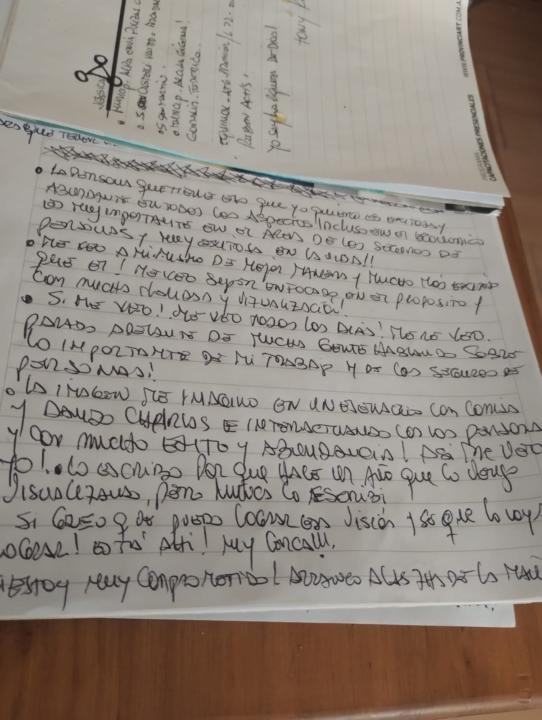 WWW.PROVINCIART.COM.A
CAPACITACIONES PRESENCIALES
Yo soy la
Tony
Ruben
• LA PERSONA QUE TIENE ESO QUE YO QUIERO ES EXITOSA Y
ABUNDANTE EN TODOS LOS ASPECTOS INCLUSO EN EL ECONOMICO
ES MUY IMPORTANTE EN EL AREA DE LOS SEGUROS DE
PERSONAS Y MUY EXITOSA EN LA VIDA!!
• ME VEO A MI MISMO DE MEJOR MANERA Y MUCHO MÁS EXITOSO
QUE EL! ME VEO SUPER ENFOCADO, EN EL PROPOSITO Y
CON MUCHA CLARIDAD Y VIZUALIZACIÓN.
• SI ME VEO! ME VEO TODOS LOS DIAS! ME RE VEO.
PARADO ADELANTE DE MUCHA GENTE HABLANDO SOBRE
LO IMPORTANTE DE MI TRABAJO Y DE LOS SEGUROS DE
PERSONAS!
• LA IMAGEN ME IMAGINO EN UN ESENARIO CON CAMISA
Y DANDO CHARLAS E INTERACTUANDO CON LAS PERSONAS
Y CON MUCHO EXITO Y ABUNDANCIA! ASI ME VEO
YO! • LO ESCRIBO POR QUE HACE UN AÑO QUE LO VENGO
VISUALIZANDO, PERO NUNCA LO ESCRIBI
SI CREO Q DE PUEDO LOGRAR ESA VISIÓN Y SE QUE LO VOY A
LOGRAR! ESTÁ AHI! MUY CERCA!!!.
ESTOY MUY COMPROMETIDO! ARRANCO A LAS 7 HS DE LA MAÑ